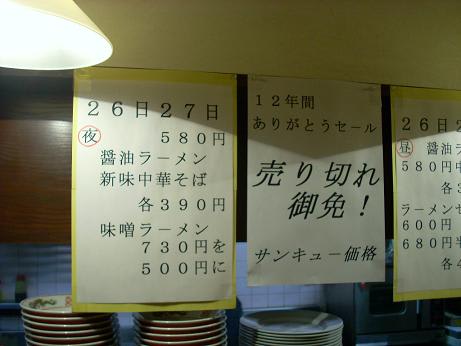 26日27日
夜 580円
醤油ラーメン
新味中華そば
各390円
味噌ラーメン
730円を
500円に
12年間
ありがとうセール
売り切れ
御免！
サンキュー価格
26日2
昼 醤油
580円
各3
ラーメン
600円
680円半
各4